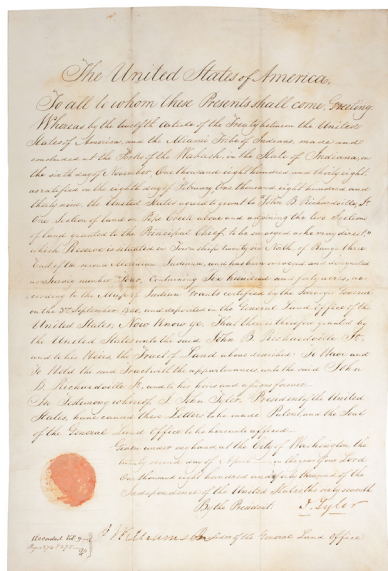 The United States of America,
To all to whom these Presents shall come, Greeting:
Whereas by the twelfth article of the Treaty between the United
States of America, and the Miamie Tribe of Indians, made and
concluded at the Forks of the Wabash, in the State of Indiana, on
the sixth day of November, One thousand eight hundred and thirty eight,
as ratified on the eighth day of February One thousand eight hundred and
thirty nine the United States agreed to grant to John B. Richardville Jr.
One section of land on Pipe Creek above and adjoining the two sections
of land granted to the Principal Chief, to be surveyed as he may direct
which Reserve is situated in Township twenty six North of Range three
East of the second Meridian Indiana, and has been surveyed and designated
as Reserve number Four, Containing Six hundred and forty acres, ac-
cording to the Map of Indian Grants certified by the Surveyor General
on the September and deposited in the General Land Office of the
United States; Now Know ye, That there is therefore granted by
the United States unto the said John B. Richardville Jr.
and to his Heirs the Tract of Land above described: To Have and
to Hold the said Tract with the appurtenances unto the said John
B. Richardville Jr. and to his heirs and assigns forever.
In Testimony whereof, I, John Tyler, President of the United
States, have caused these Letters to be made Patent, and the Seal
of the General Land Office to be hereunto affixed.
Given under my hand at the City of Washington the
twenty second day of April in the year of our Lord
One thousand eight hundred and and of the
Independence of the United States the sixty seventh
By the President: J. Tyler
Williams Recorder of the General Land Office
Recorded Vol
Pages 274 & 275